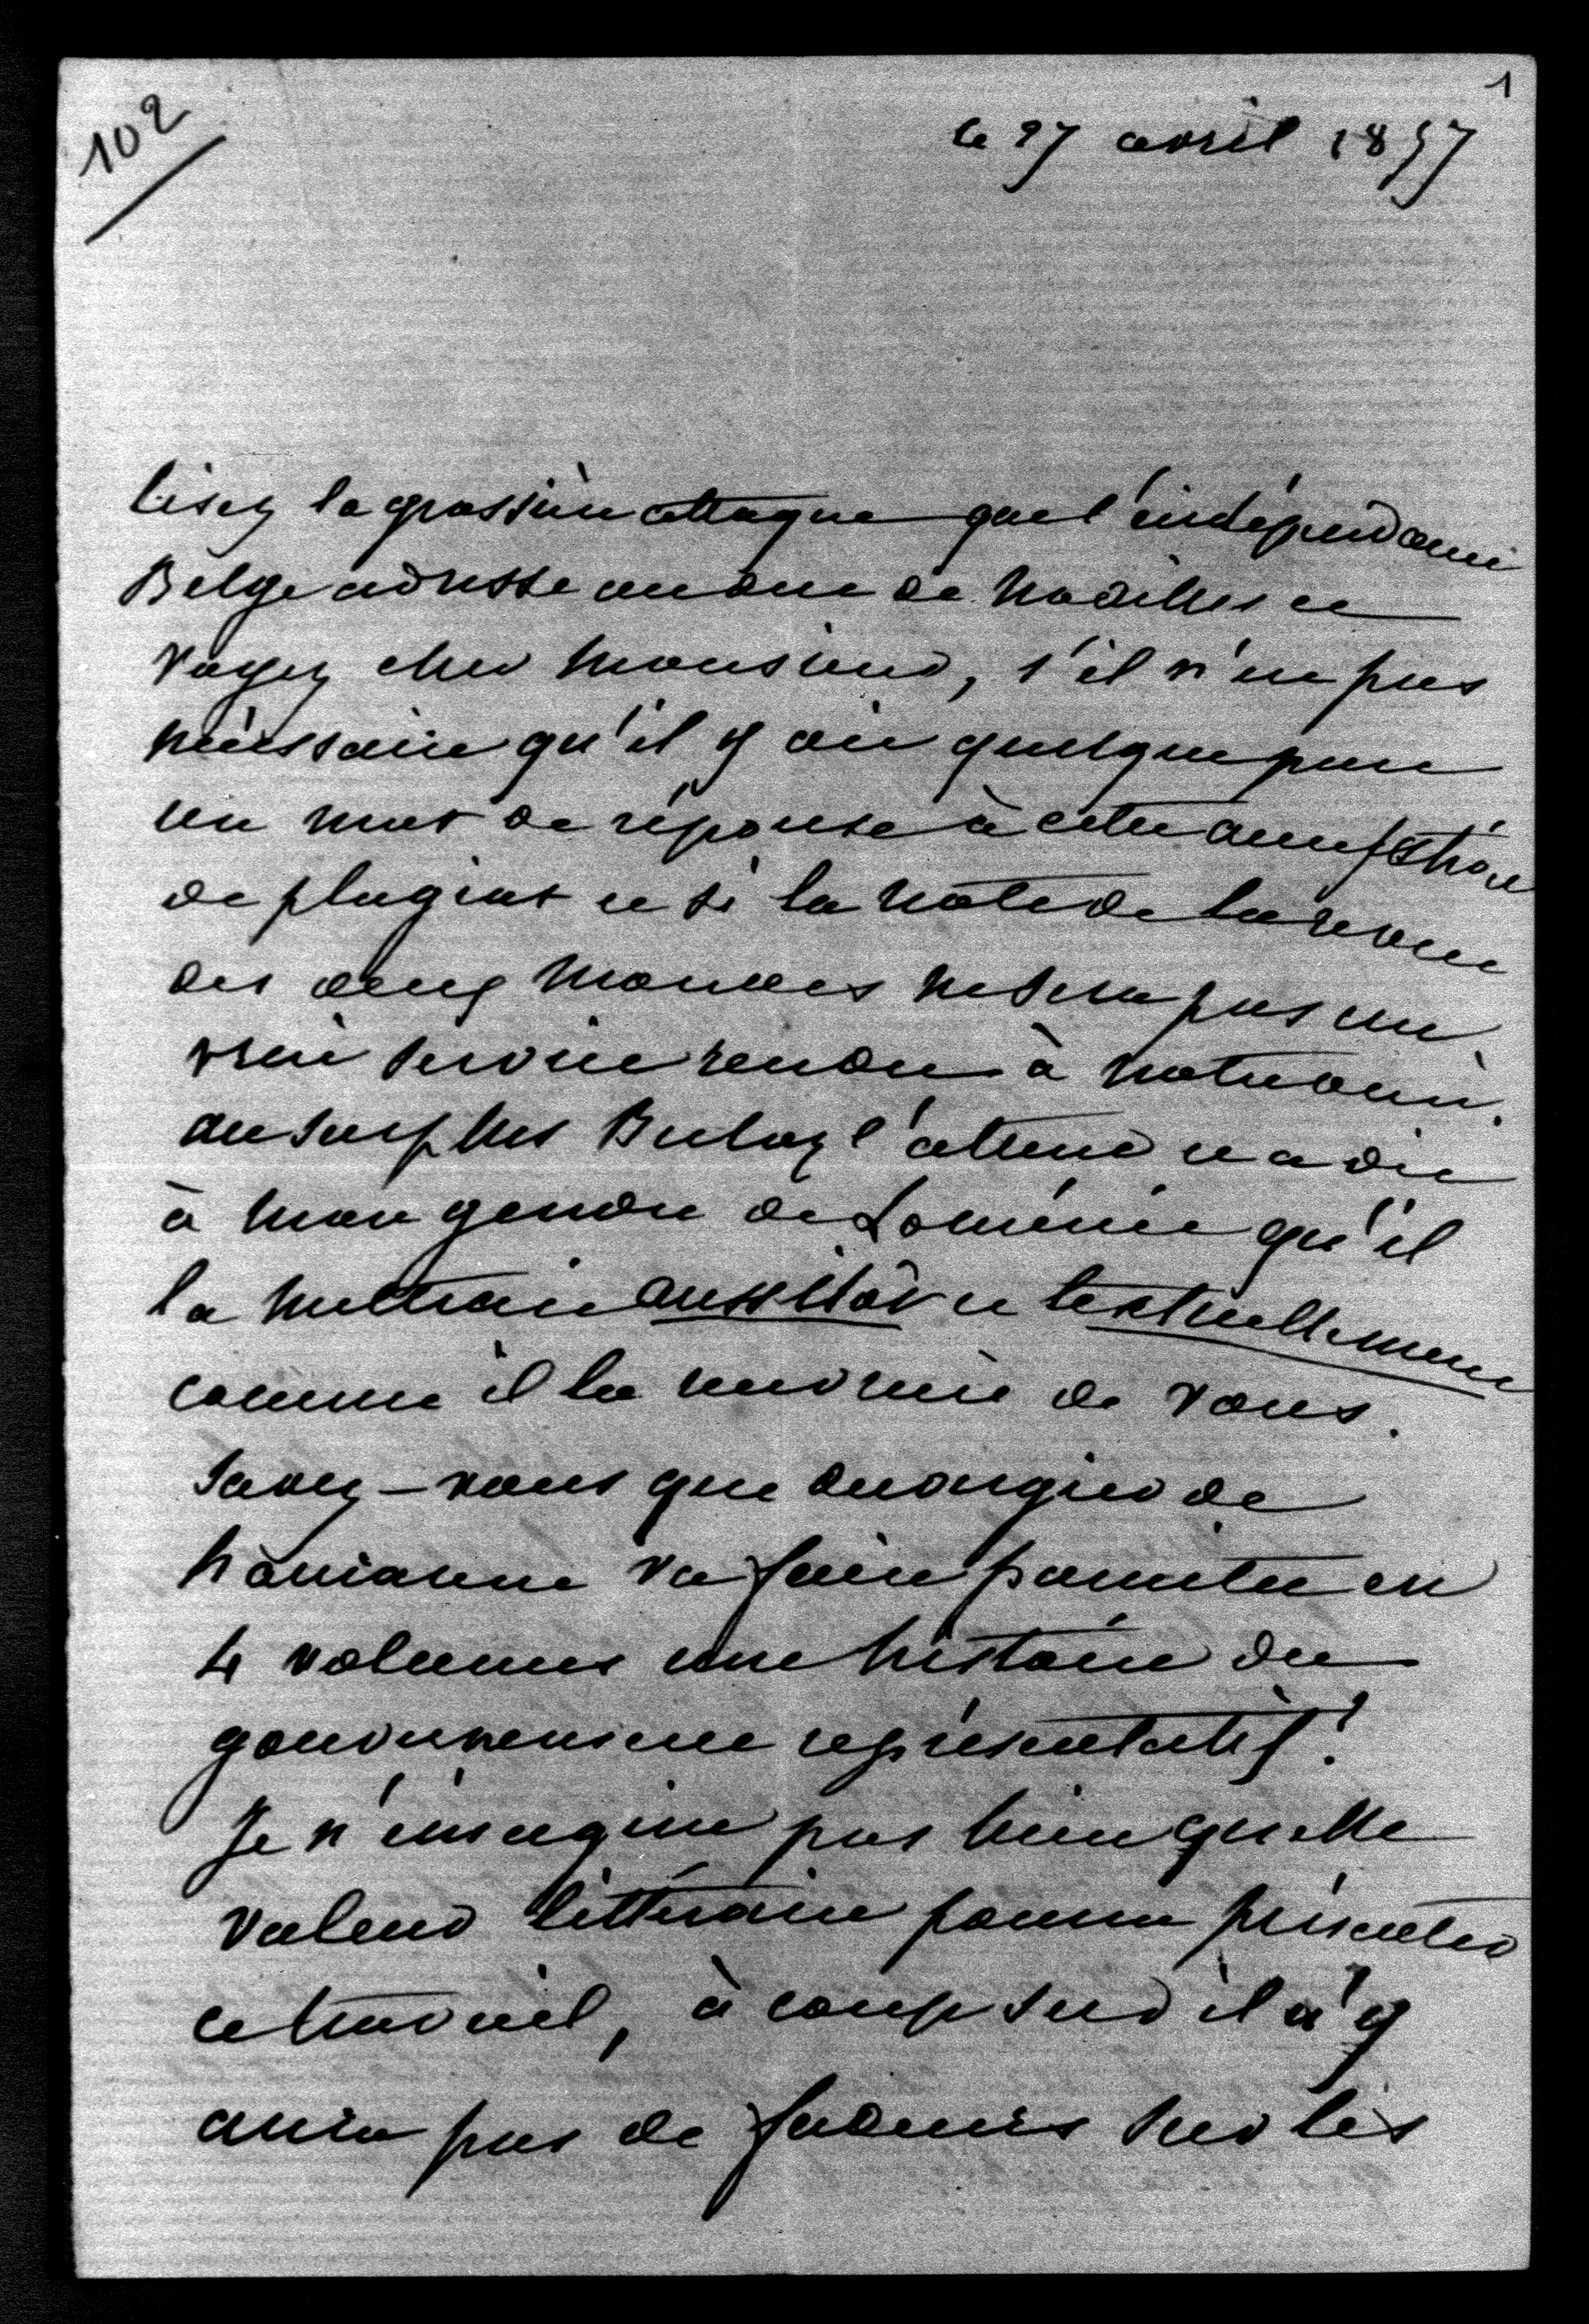 102
1
le 27 avril 1857
Lisez la grossière attaque que l'indépendance
Belge adresse au duc de Noailles et
voyez cher Monsieur, s'il n'est pas
nécessaire qu'il y ait quelque part
un mot de réponse à cette accusation
de plagiat et si la note de la revue
des deux Mondes ne sera pas un
vrai service rendu à notre ami.
au surplus Buloz l'attend et a dit
à mon gendre de Loménie qu'il
la mettrait aussitôt et textuellement
comme il la recevrait de vous.
Savez-vous que duvergier de
hauranne va faire paraitre en
4 volumes une histoire du
gouvernement représentatif?
Je n'imagine pas bien quelle
valeur littéraire pourra présenter
ce travail, à coup sur il n'y
aura pas de fadeurs sur les